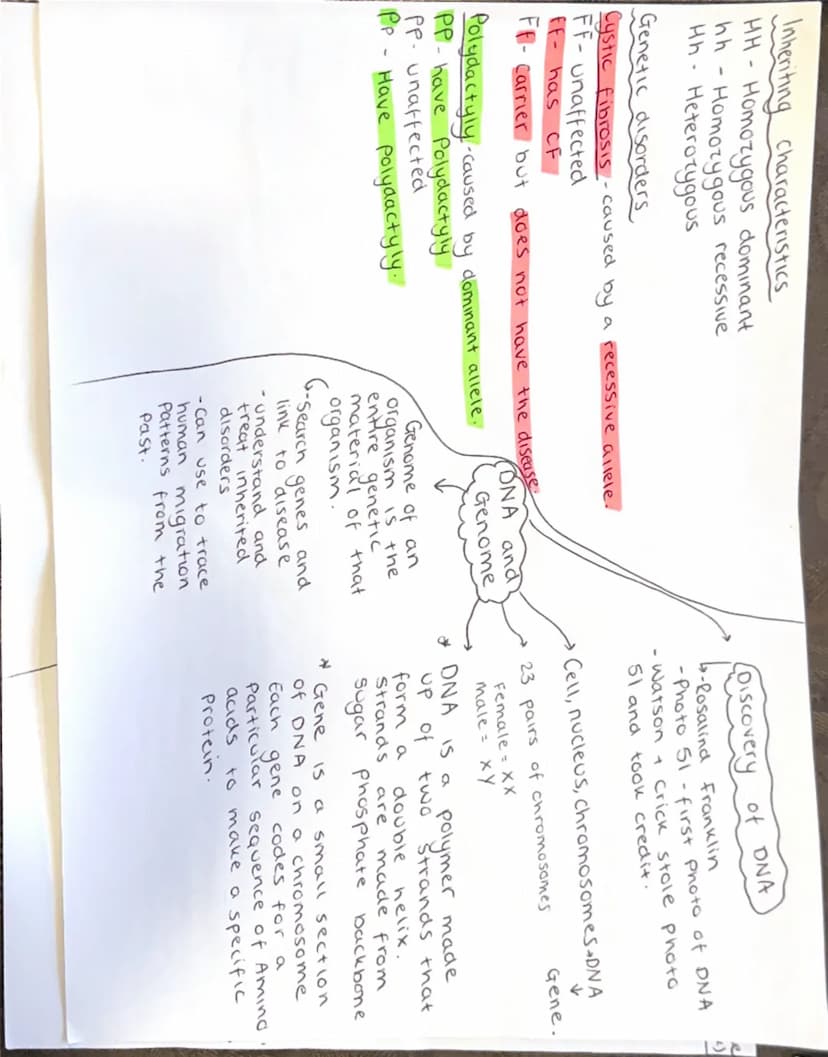 Inheriting characteristics
HH - Homozygous dominant
hh - Homozygous recessive
Hh - Heterozygous
Genetic disorders
Cystic fibrosis - caused by a recessive allele.
FF - unaffected
ff - has CF
Ff - Carrier but does not have the disease
Polydactyly - caused by dominant allele.
PP - have polydactyly
pp - unaffected
Pp - Have polydactyly.
DNA and
Genome
Genome of an
organism is the
entire genetic
material of that
organism.
- search genes and
link to disease
- understand and
treat inherited
disorders
- can use to trace
human migration
patterns from the
past.
Discovery of DNA
- Rosalind Franklin
- Photo 51 - first photo of DNA
- Watson + Crick stole photo
51 and took credit.
Cell, nucleus, chromosomes → DNA
↓
Gene.
23 pairs of chromosomes
Female = xx
male = xy
* DNA is a polymer made
up of two strands that
form a double helix.
strands are made from
sugar phosphate backbone
* Gene is a small section
of DNA on a chromosome
Each gene codes for a
particular sequence of Amino
acids to make a specific
protein.